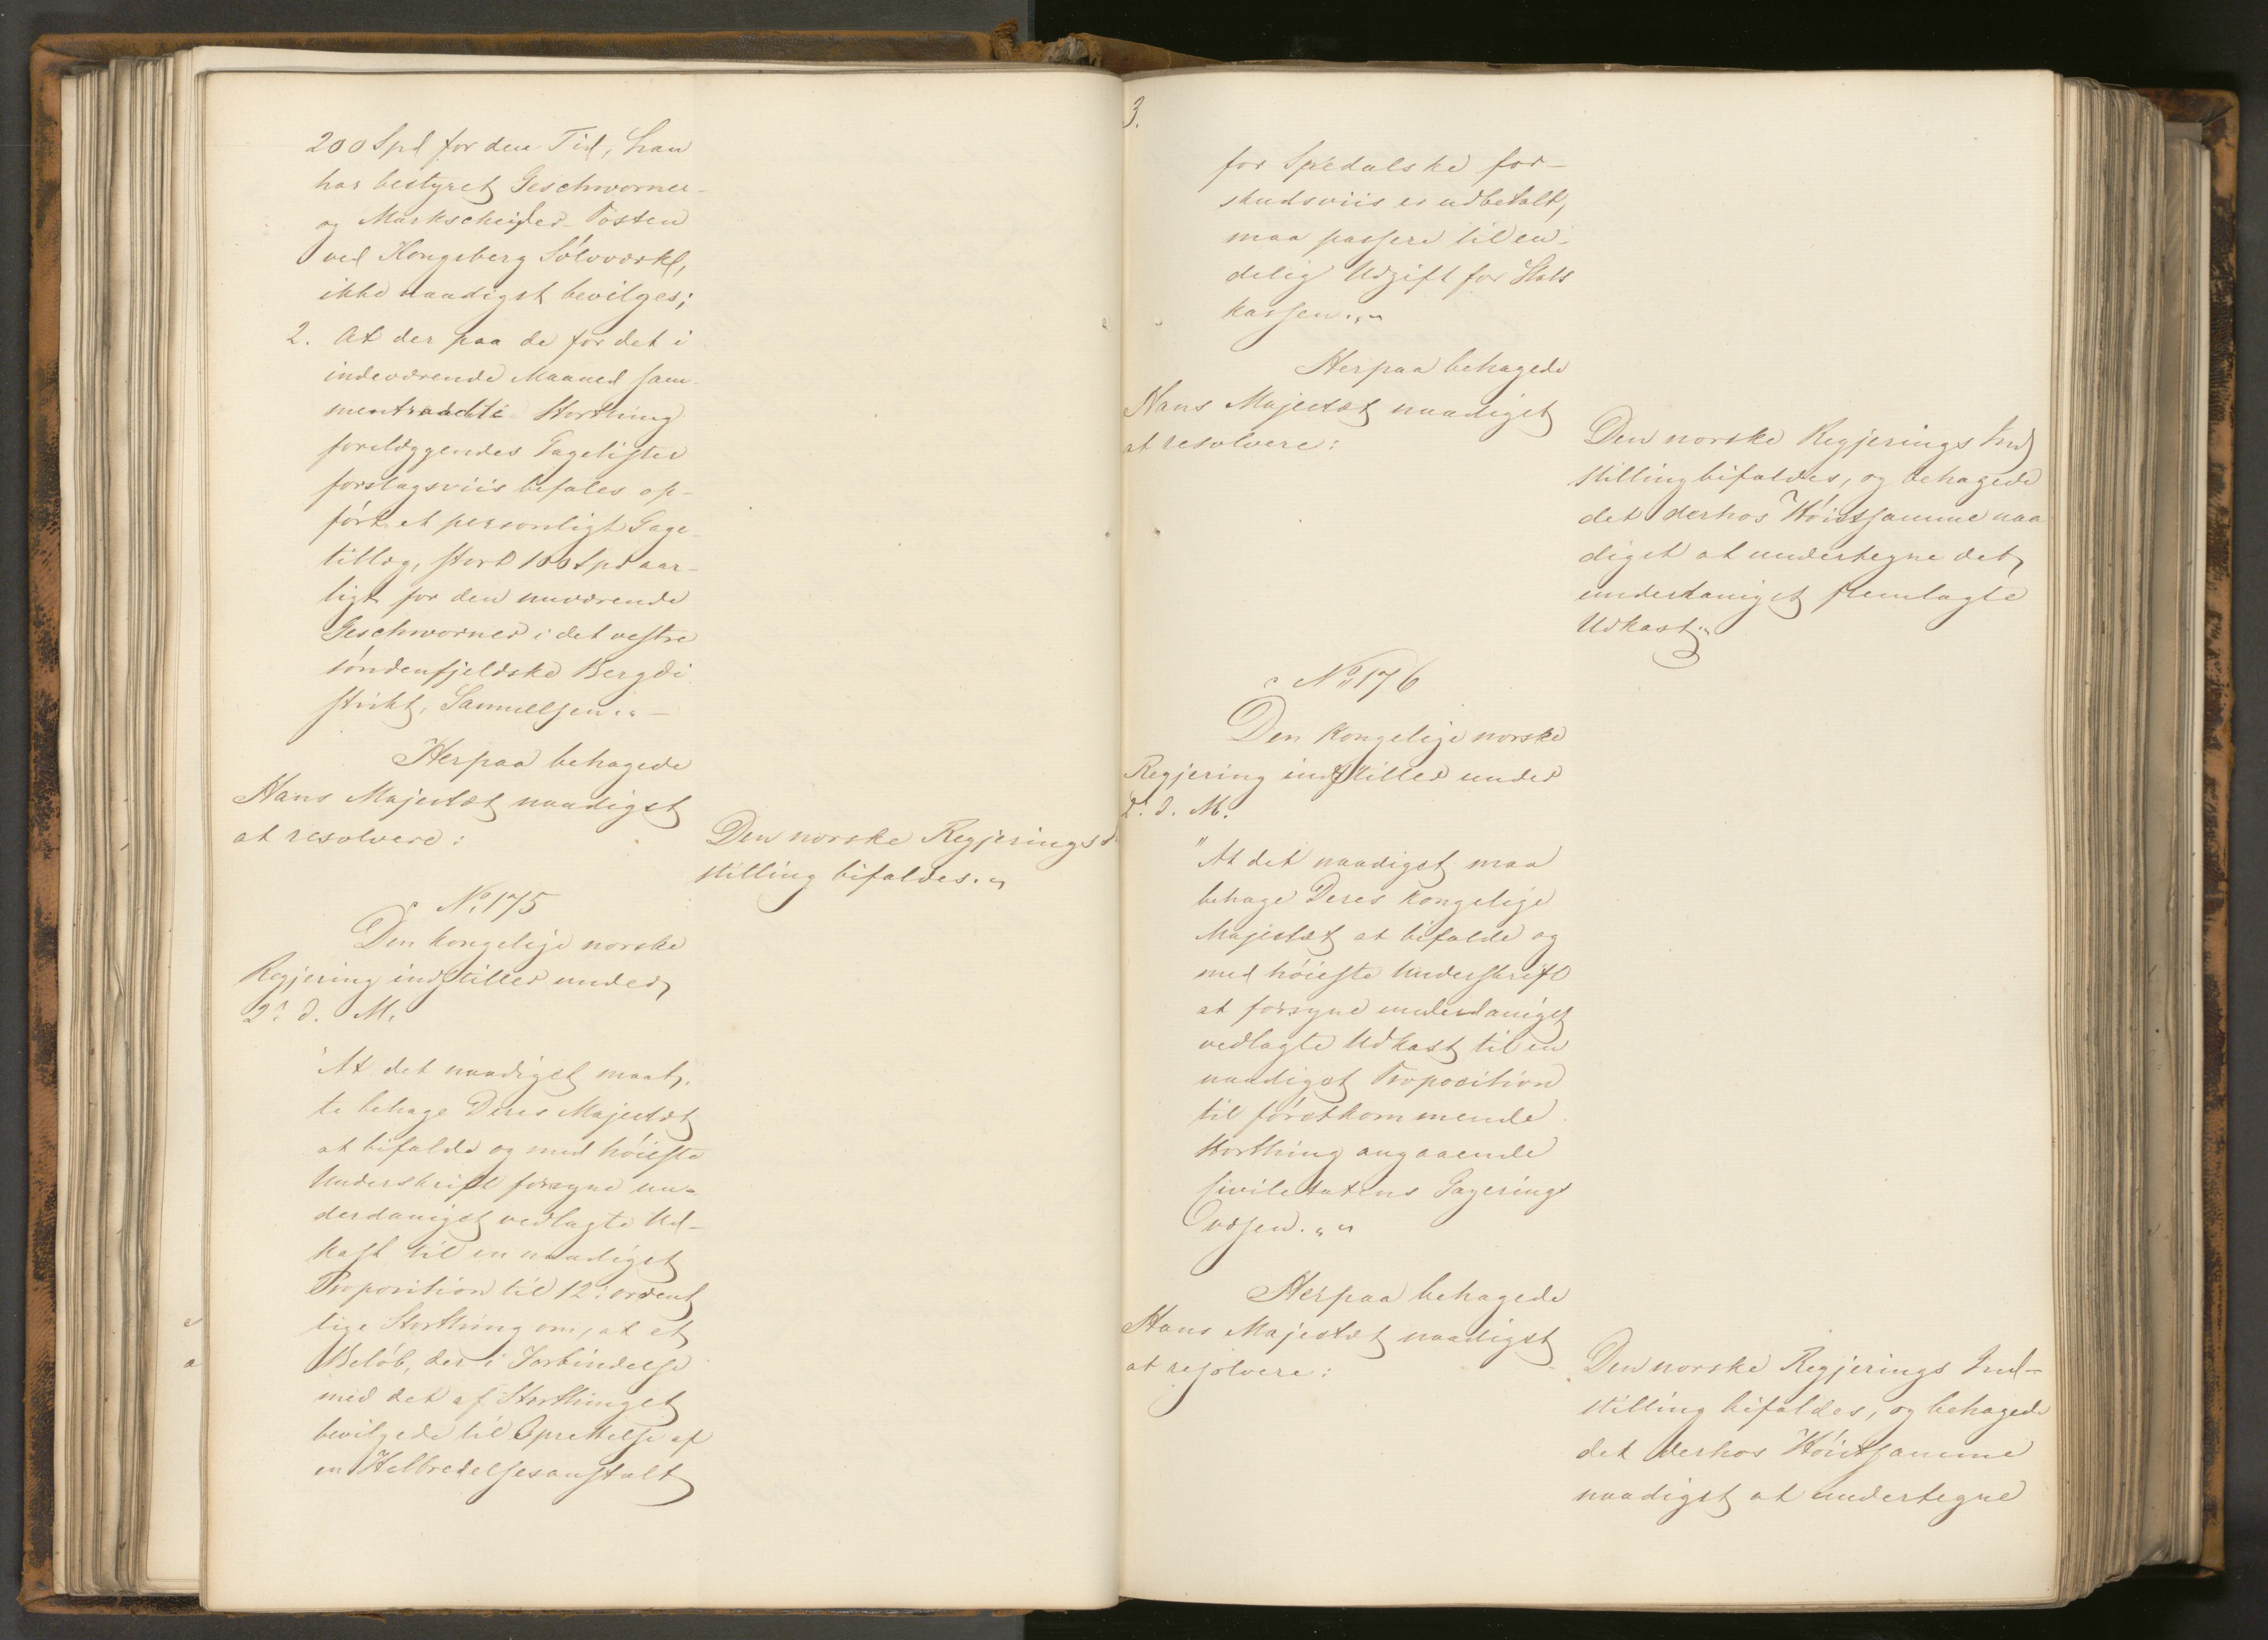 200 Spd for den Tid, han
har bestyret Geschworner-
og Markscheider-Posten
ved Kongsberg Sölvværk,
ikke naadigst bevilges;
2. At der paa de for det i
indeværende Maaned sam-
mentraadte Storthing
forelæggendes Gagelister
forslagsviis befales op-
fört et personligt Gage-
tillæg, stort 100 Spd aar-
ligt for den nuværende
Geschworner i det vestre
söndenfjeldske Bergdi
strikt, Samuelsen." –
Herpaa behagede
Hans Majestæt naadigst
at resolvere:
Den norske Regjerings
stilling bifaldes."
No 175
Den kongelige norske
Regjering indstiller under
2. d. M.
"At det naadigst maat-
te behage Deres Majestæt
at bifalde og med höieste
Underskrift forsyne un-
derdanigst vedlagte Ud-
kast til en naadigst
Proposition til 12te ordent
lige Storthing om, at et
Belöb, der i Forbindelse
med det af Storthinget
bevilgede til Oprettelse af
en Helbredelsesanstalt
3.
for Spedalske for-
skudsviis er udbetalt,
maa passere til en-
delig Udgift for Stats
kassen.""
Herpaa behagede
Hans Majestæt naadigst
at resolvere:
Den norske Regjerings Ind
stilling bifaldes, og behagede
det derhos Höistsamme naa
digst at undertegne det
underdanigst fremlagte
Udkast."
No 176
Den kongelige norske
Regjering indstiller under
2. d. M.
"At det naadigst maa
behage Deres Kongelige
Majestæt at bifalde og
med höieste Underskrift
at forsyne underdanigst
vedlagte Udkast til en
naadigst Proposition
til förstkommende
Storthing angaaende
Civiletatens Gagerings
væsen.""
Herpaa behagede
Hans Majestæt naadigst
at resolvere:
Den norske Regjerings Ind-
stilling bifaldes, og behagede
det derhos Höistsamme
naadigst at undertegne